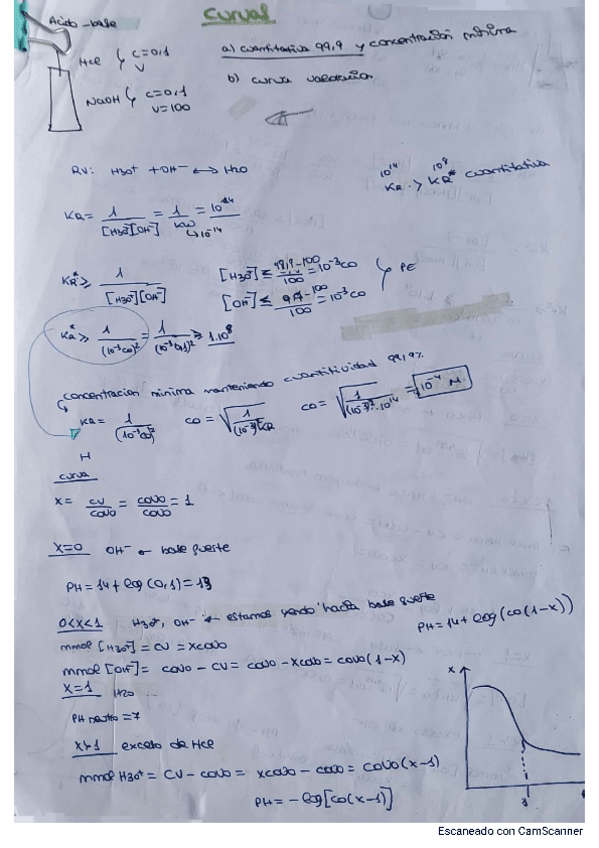 Curvas
Acido-base
HCl { C=0,1
V
NaOH { C=0,1
V=100
a) cuantitativa 99,9 y concentración mínima
b) curva valoración.
RV: H3O+ + OH- ↔ H2O
10^14 10^8
KR > KR* cuantitativa
KR = 1/[H3O+][OH-] = 1/KW = 10^14
↳ 10^-14
KR* ≥ 1/[H3O+][OH-]
[H3O+] ≤ 99,9-100/100 = 10^-3 CO
[OH-] ≤ 99,9-100/100 = 10^-3 CO
} PE
KR* ≥ 1/(10^-3 CO)^2 = 1/(10^-3 0,1)^2 ≥ 1·10^8
concentracion minima manteniendo cuantitividad 99,9%
KR = 1/(10^-3 CO)^2 CO = √1/(10^-3)^2 KR CO = √1/(10^-3)^2·10^14 = 10^-4 M
H
curva
X = CV/COVO = COVO/COVO = 1
X=0 OH- ← base fuerte
PH = 14 + log (0,1) = 13
0<X<1 H3O+, OH- ← estamos yendo hacia base fuerte
PH = 14 + log (CO(1-X))
mmol [H3O+] = CV = XCOVO
mmol [OH-] = COVO - CV = COVO - XCOVO = COVO (1-X)
X=1 H2O
PH neutro = 7
X>1 exceso de HCl
mmol H3O+ = CV - COVO = XCOVO - COVO = COVO (X-1)
PH = -log [CO(X-1)]
X
1
Escaneado con CamScanner